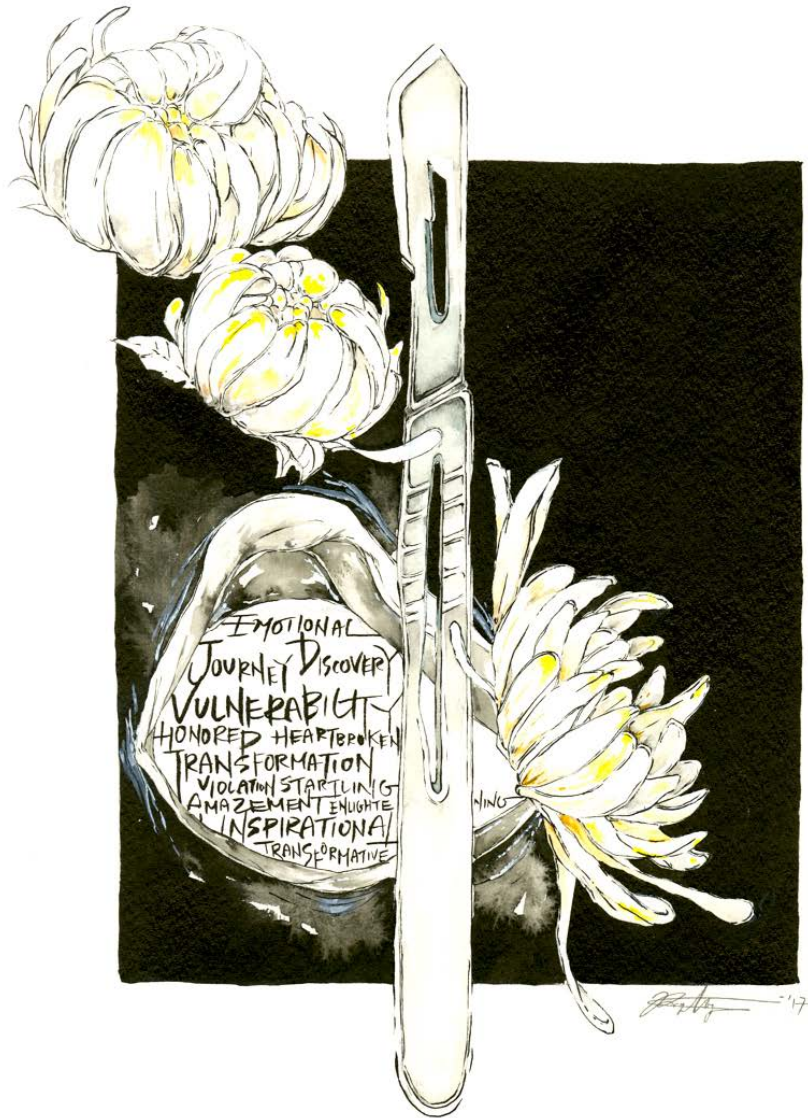 EMOTIONAL
JOURNEY DISCOVERY
VULNERABILITY
HONORED HEARTBROKEN
TRANSFORMATION
VIOLATION STARTLING
AMAZEMENT ENLIGHTENING
INSPIRATIONAL
TRANSFORMATIVE
'17